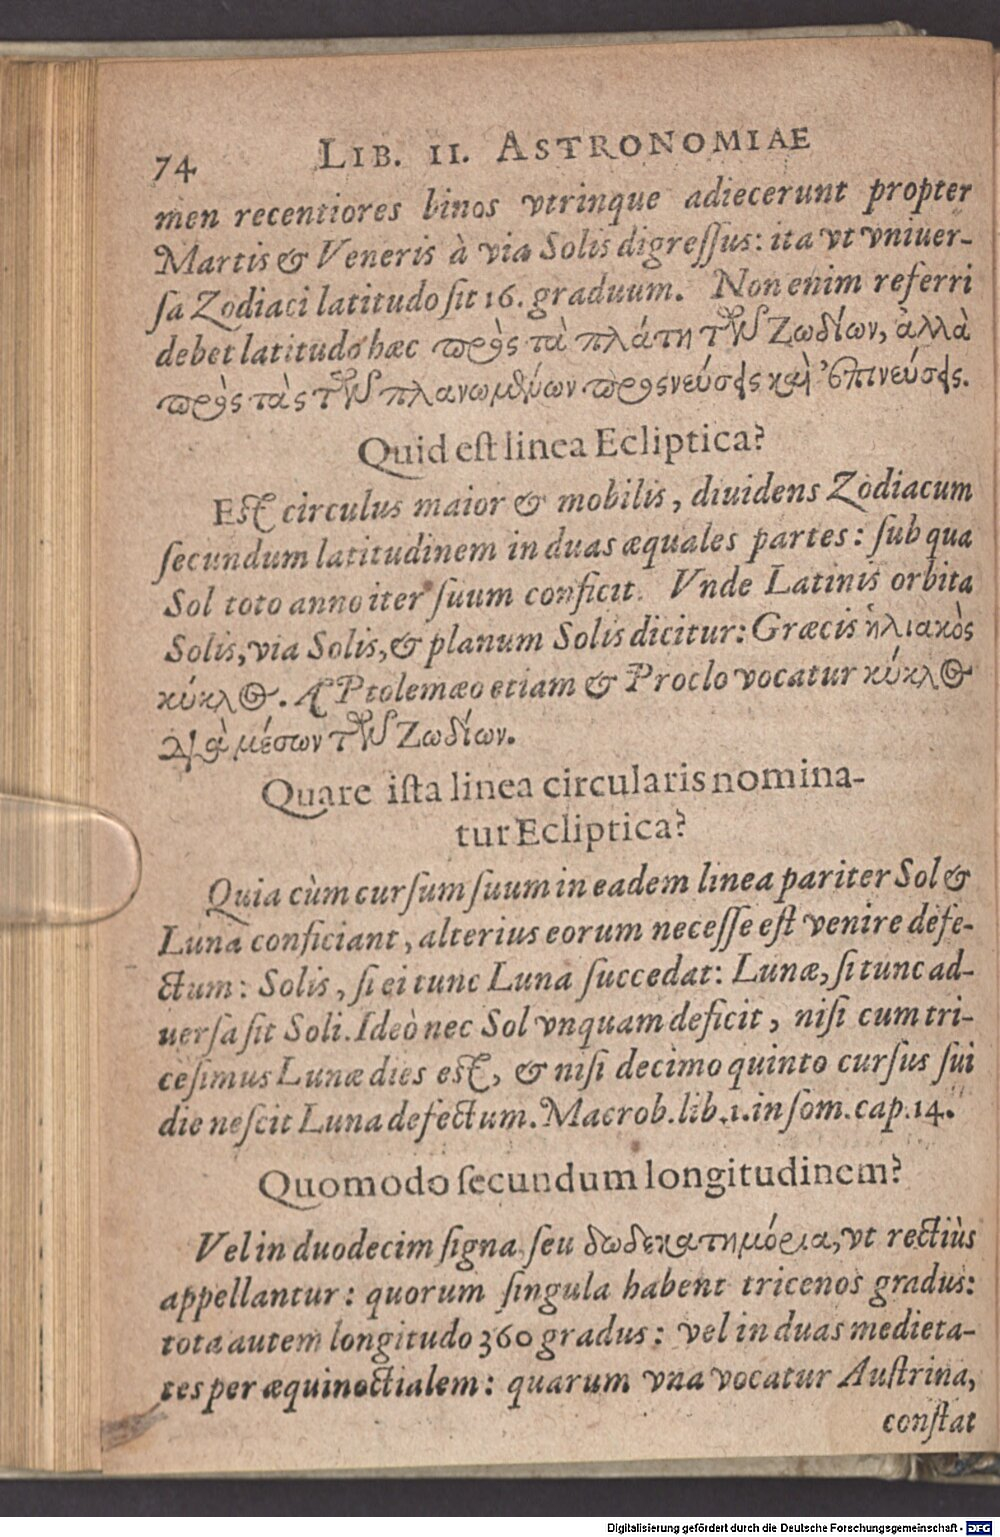 74 LIB. II. ASTRONOMIAE
men recentiores binos vtrinque adiecerunt propter
Martis & Veneris à via Solis digreſſus: ita vt vniuer-
ſa Zodiaci latitudo ſit 16. graduum. Non enim referri
debet latitudo hæc πρὸς τὰ πλάτη τῶν Ζωδίων, ἀλλὰ
πρὸς τὰς τῶν πλανωμένων προσνεύσεις καὶ ἐπινεύσεις.
Quid eſt linea Ecliptica?
Eſt circulus maior & mobilis, diuidens Zodiacum
ſecundum latitudinem in duas æquales partes: ſub qua
Sol toto anno iter ſuum conficit. Vnde Latinis orbita
Solis, via Solis, & planum Solis dicitur: Græcis ἡλιακὸς
κύκλος. A Ptolemæo etiam & Proclo vocatur κύκλος
διὰ μέσων τῶν Ζωδίων.
Quare iſta linea circularis nomina-
tur Ecliptica?
Quia cùm curſum ſuum in eadem linea pariter Sol &
Luna conficiant, alterius eorum neceſſe eſt venire defe-
ctum: Solis, ſi ei tunc Luna ſuccedat: Lunæ, ſi tunc ad-
uerſa ſit Soli. Ideò nec Sol vnquam deficit, niſi cum tri-
ceſimus Lunæ dies eſt, & niſi decimo quinto curſus ſui
die neſcit Luna defectum. Macrob. lib. 1. in ſom. cap. 14.
Quomodo ſecundum longitudinem?
Vel in duodecim ſigna, ſeu δωδεκατημόρια, vt rectiùs
appellantur: quorum ſingula habent tricenos gradus:
tota autem longitudo 360 gradus: vel in duas medieta-
tes per æquinoctialem: quarum vna vocatur Auſtrina,
conſtat
Digitalisierung gefördert durch die Deutsche Forschungsgemeinschaft - DFG